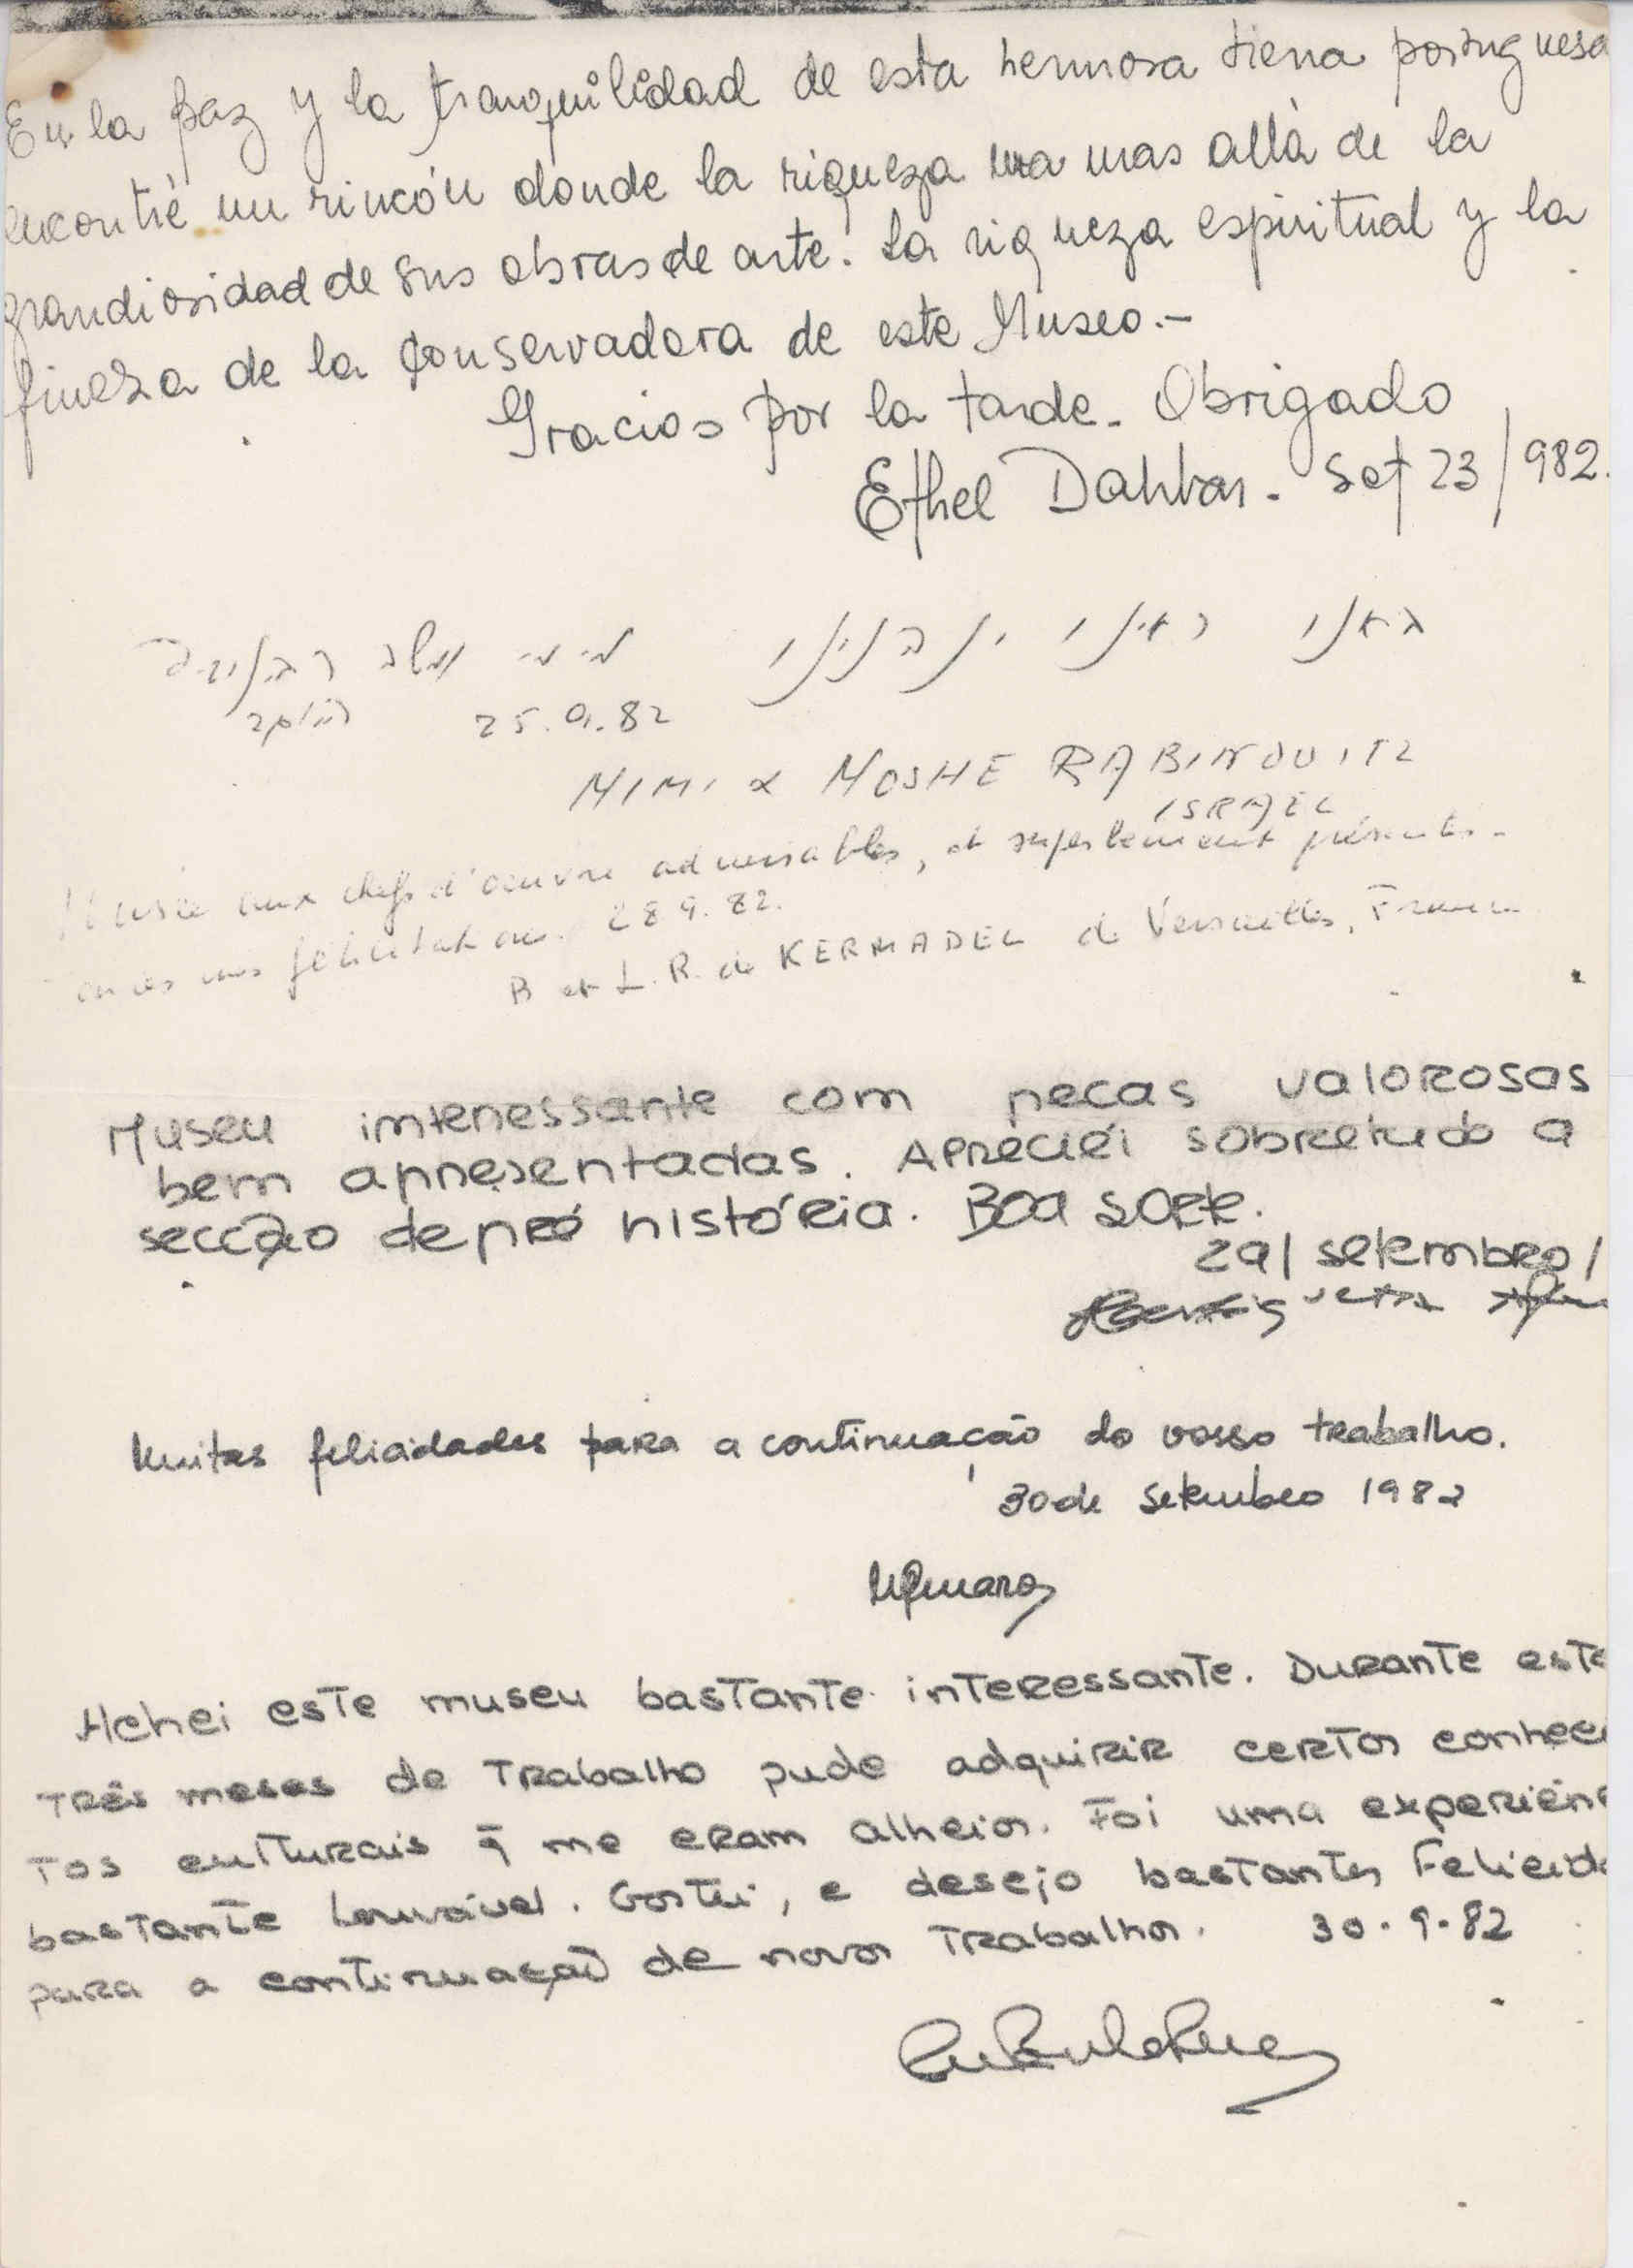 En la paz y la tranquilidad de esta hermosa tierra portuguesa
encontré un rincón donde la riqueza va mas allá de la
grandiosidad de sus obras de arte. La riqueza espiritual y la
fineza de la conservadora de este Museo.-
Gracias por la tarde. Obrigado
Ethel Dahbar. Set 23/982.
באנו ראינו ונהנינו
מימי ומשה רבינוביץ
25.9.82
MIMI & MOSHE RABINOVITZ
ISRAEL
Musée aux chefs d'oeuvre admirables, et superbement présentés.
félicitations. 28.9.82.
B et L. R. de KERMADEC de Versailles, France
Museu interessante com peças valorosas
bem apresentadas. Apreciei sobretudo a
secção de pré história. Boa sorte.
29/setembro/
Muitas felicidades para a continuação do vosso trabalho.
30 de Setembro 1982
Achei este museu bastante interessante. Durante este
três meses de trabalho pude adquirir certos conheci
tos culturais q̃ me eram alheios. Foi uma experiên
bastante louvável. Gostei, e desejo bastantes Felicida
para a continuação de novos trabalhos. 30.9.82